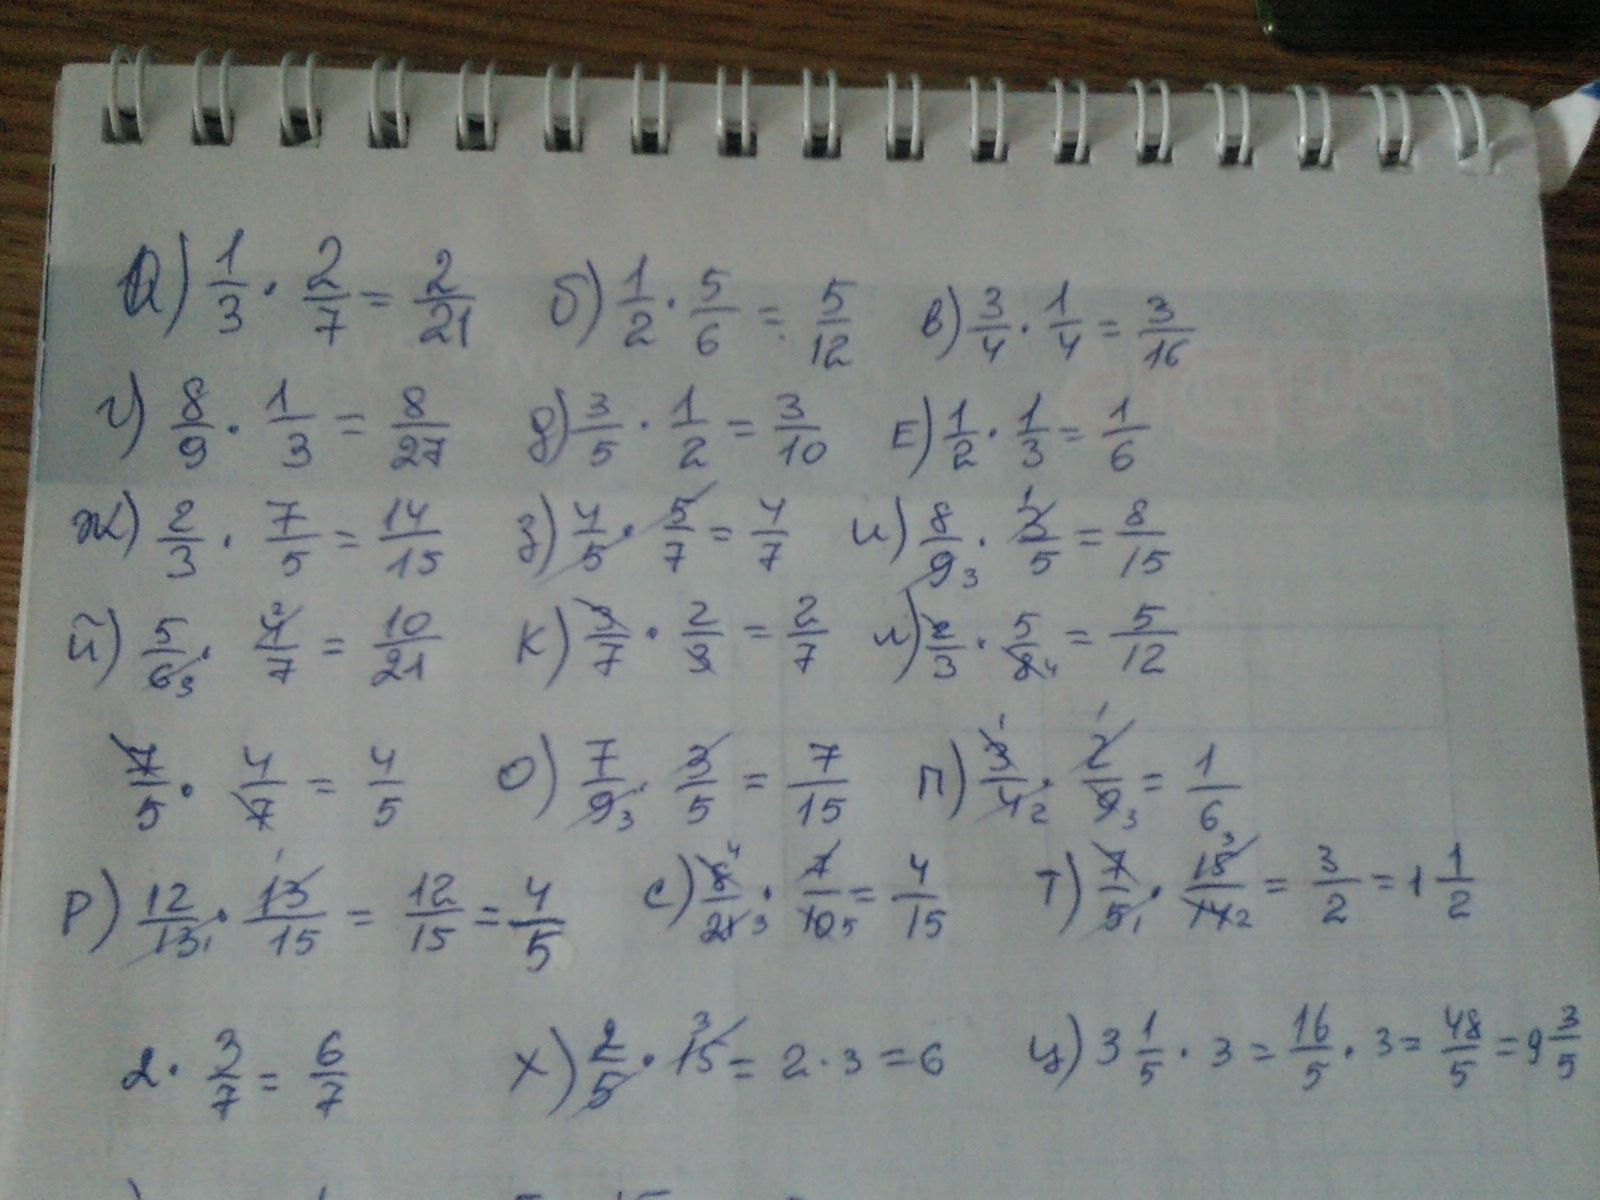 а) 1/3 · 2/7 = 2/21 б) 1/2 · 5/6 = 5/12 в) 3/4 · 1/4 = 3/16
г) 8/9 · 1/3 = 8/27 д) 3/5 · 1/2 = 3/10 Е) 1/2 · 1/3 = 1/6
Ж) 2/3 · 7/5 = 14/15 з) 4/5 · 5/7 = 4/7 и) 8/9 3 · 3 1/5 = 8/15
й) 5/6 3 · 4 2/7 = 10/21 К) 3/7 · 2/3 = 2/7 л) 2/3 · 5/8 4 = 5/12
7/5 · 4/7 = 4/5 О) 7/9 3 · 3/5 = 7/15 П) 3 1/4 2 · 2 1/9 3 = 1/6
Р) 12/13 1 · 13 1/15 = 12/15 = 4/5 С) 8 4/21 3 · 7/10 5 = 4/15 Т) 7/5 1 · 15 3/14 2 = 3/2 = 1 1/2
2 · 3/7 = 6/7 Х) 2/5 · 15 3 = 2 · 3 = 6 ц) 3 1/5 · 3 = 16/5 · 3 = 48/5 = 9 3/5